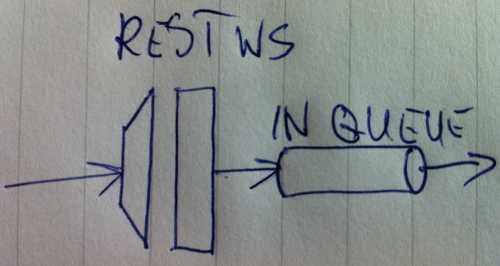 REST WS
IN QUEUE